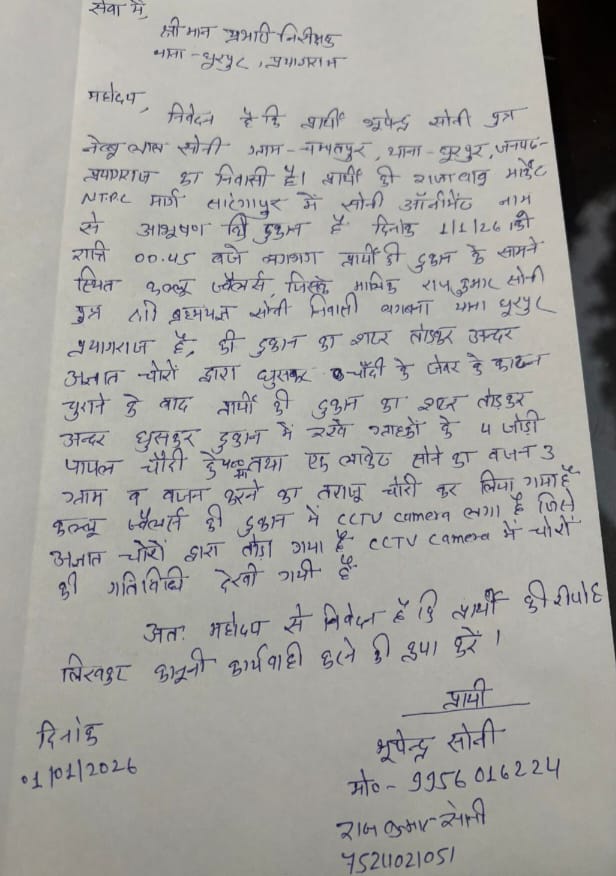 सेवा में,
श्रीमान प्रभारी निरीक्षक
थाना - घूरपुर, प्रयागराज
महोदय,
निवेदन है कि प्रार्थी भूपेन्द्र सोनी पुत्र
लाल सोनी ग्राम - थाना - घूरपुर, जनपद -
प्रयागराज का निवासी है। प्रार्थी की राजाबाबू मार्केट
NTPC मार्ग में सोनी ऑर्नामेंट नाम
से आभूषण की दुकान है दिनांक 1/1/26 की
रात्रि 00.45 बजे लगभग प्रार्थी की दुकान के सामने
स्थित कल्लू ज्वैलर्स, जिसके मालिक राजकुमार सोनी
पुत्र सोनी निवासी थाना घूरपुर
प्रयागराज है, की दुकान का शटर तोड़कर अन्दर
अज्ञात चोरों द्वारा घुसकर चाँदी के जेवर के काटन
चुराने के बाद प्रार्थी की दुकान का शटर तोड़कर
अन्दर घुसकर दुकान में रखे ग्राहकों के 4 जोड़ी
पायल चाँदी के तथा एक लाकेट सोने का वजन 3
ग्राम व वजन करने का तराजू चोरी कर लिया गया है
कल्लू ज्वैलर्स की दुकान में CCTV Camera लगा है जिसे
अज्ञात चोरों द्वारा तोड़ा गया है CCTV Camera में चोरों
की गतिविधि देखी गयी है
अतः महोदय से निवेदन है कि प्रार्थी की रिपोर्ट
लिखकर कानूनी कार्यवाही करने की कृपा करें।
प्रार्थी
दिनांक
01/01/2026
भूपेन्द्र सोनी
मो० - 9956016224
राज कुमार सोनी
7524021051